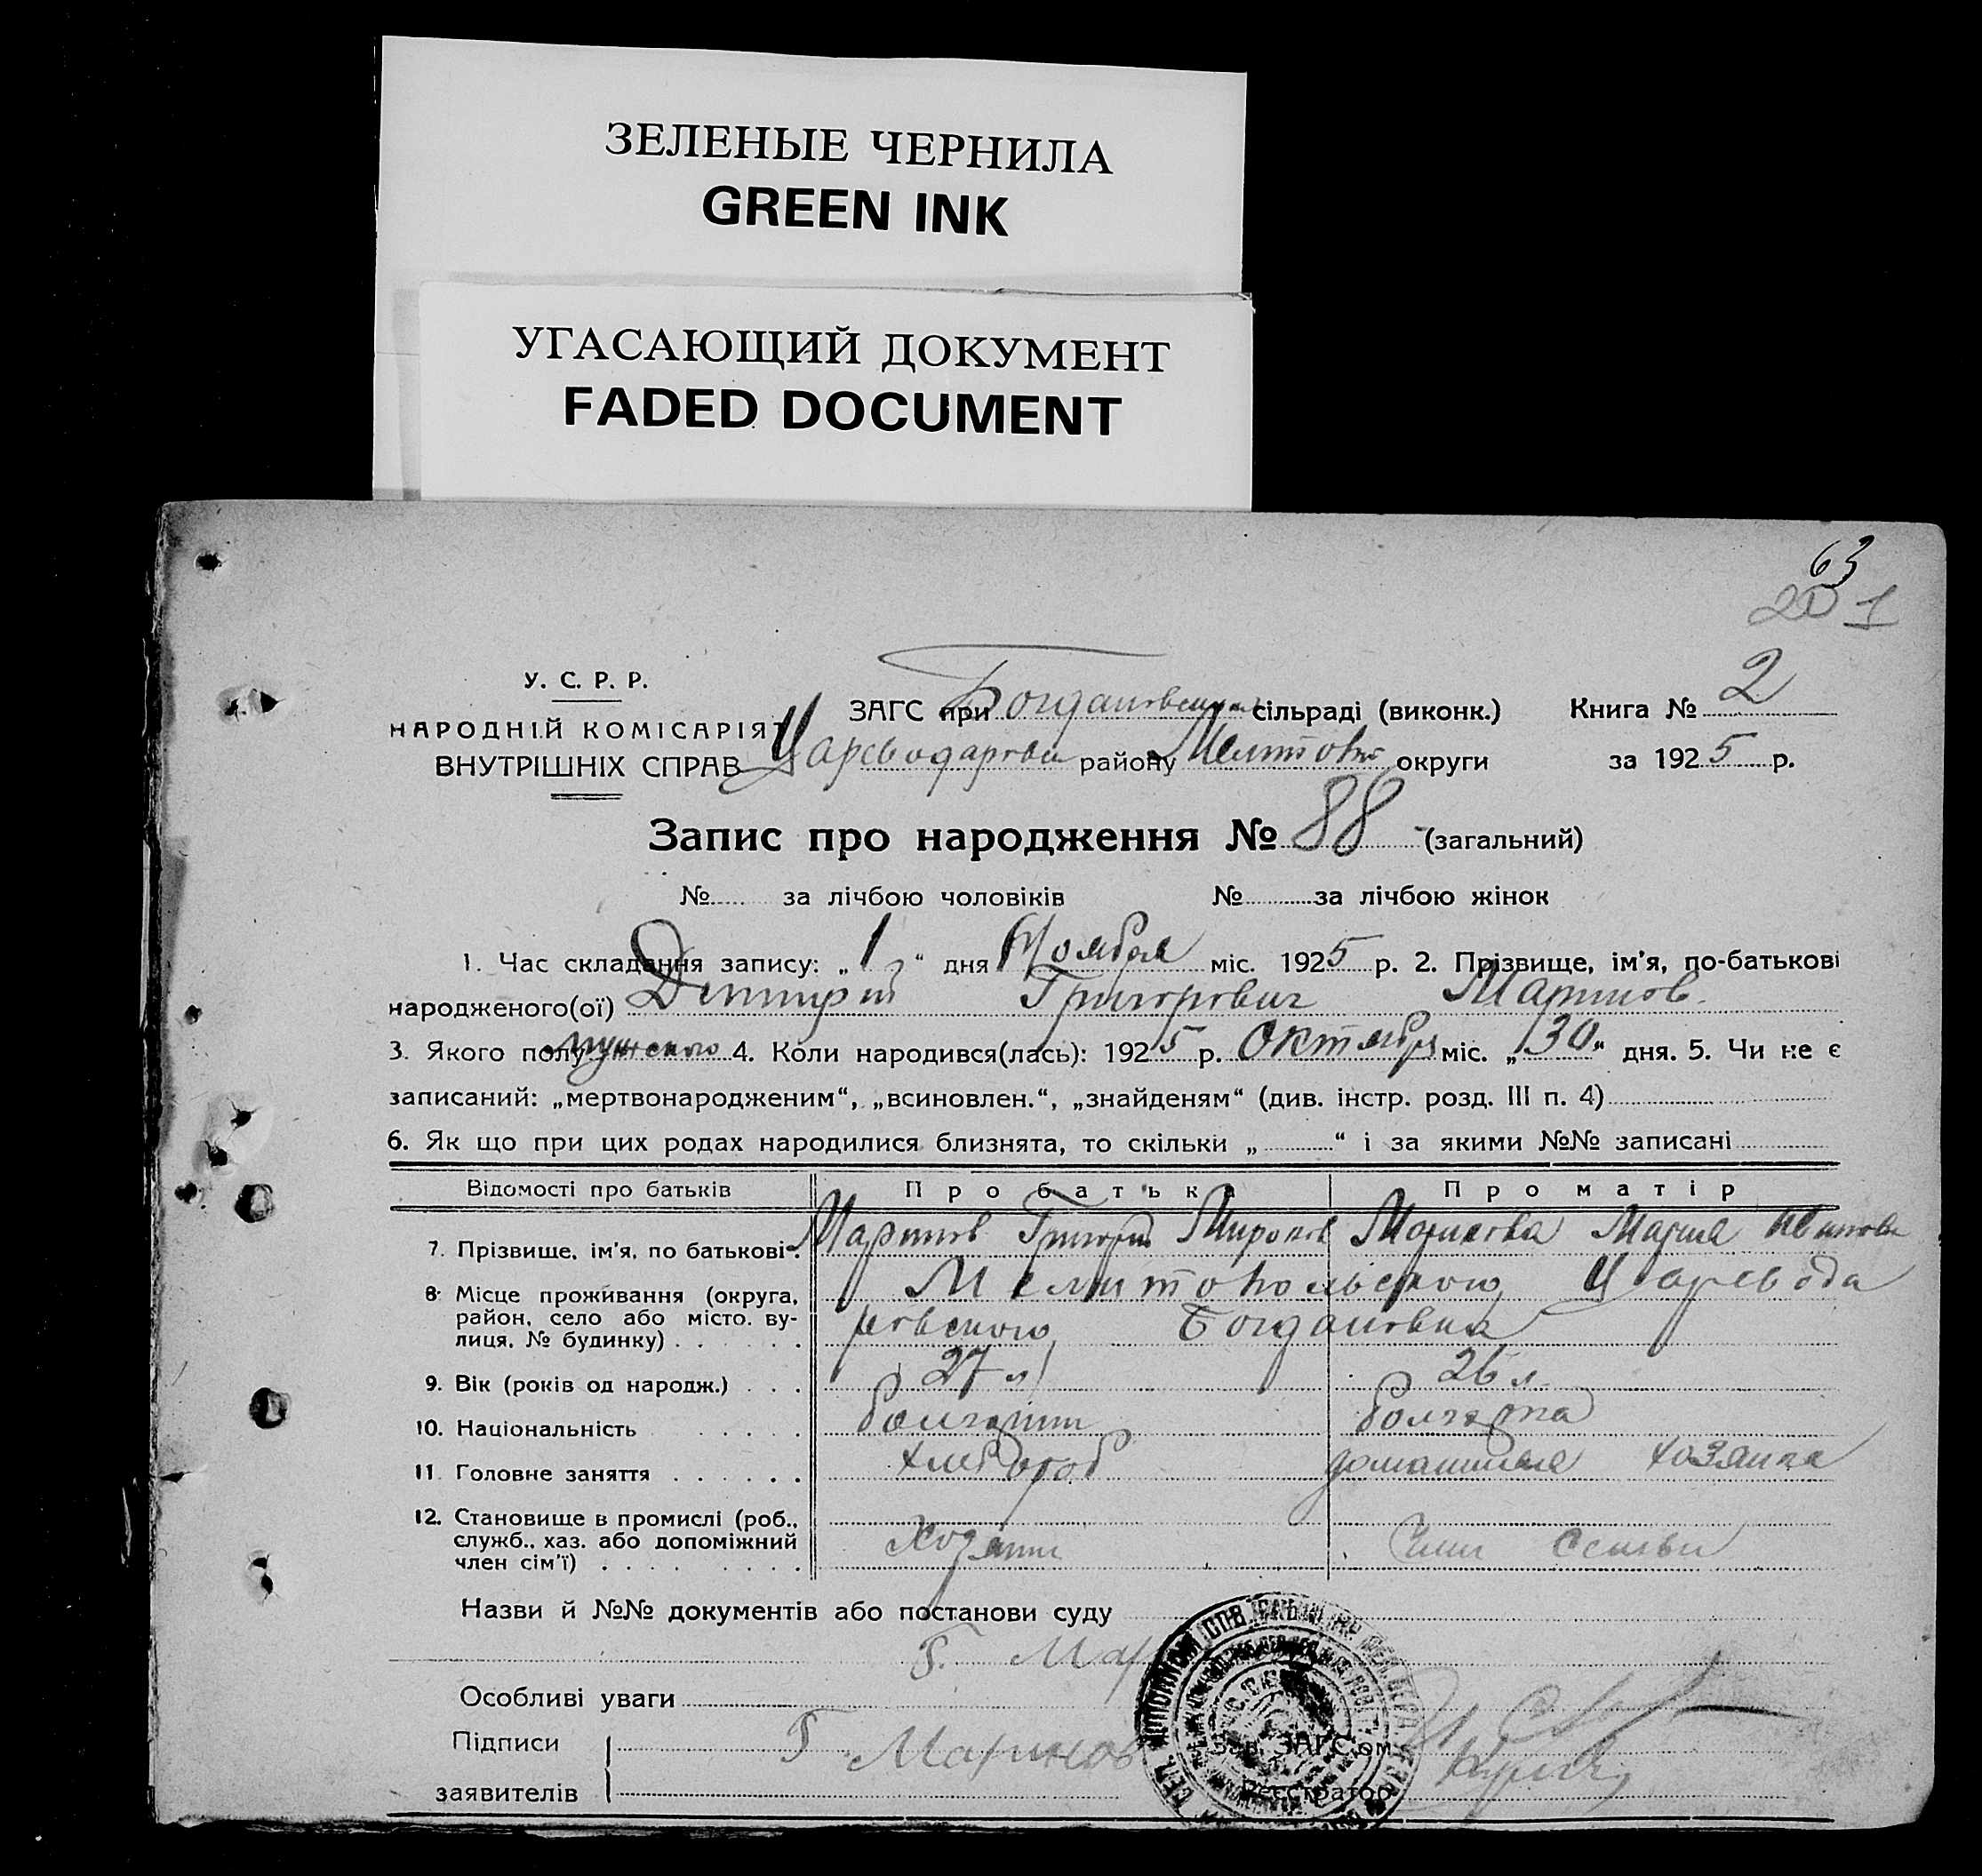 ЗЕЛЕНЫЕ ЧЕРНИЛА
GREEN INK
УГАСАЮЩИЙ ДОКУМЕНТ
FADED DOCUMENT
63
201
У. С. Р. Р.
НАРОДНІЙ КОМІСАРІЯТ
ВНУТРІШНІХ СПРАВ
ЗАГС при Богдановском сільраді (виконк.)
Цареводаровск району Мелитов округи
Книга № 2
за 1925 р.
Запис про народження № 88 (загальний)
№ за лічбою чоловіків № за лічбою жінок
1. Час складання запису: „1“ дня Ноября міс. 1925 р. 2. Прізвище, ім’я, по-батькові
народженого(ої) Дмитрий Григорович Маринов.
3. Якого полу мужского 4. Коли народився(лась): 1925 р. Октября міс. „30“ дня. 5. Чи не є
записаний: „мертвонародженим“, „всиновлен.“, „знайденям“ (див. інстр. розд. III п. 4)
6. Як що при цих родах народилися близнята, то скільки „ “ і за якими №№ записані
Відомості про батьків Про батька Про матір
7. Прізвище, ім’я, по батькові Маринов Григорий Миронов Маринова Мария Иванова
8. Місце проживання (округа, Мелитопольского Царевода
район, село або місто, ву- ровского Богдановка
лиця, № будинку)
9. Вік (років од народж.) 27 л 26 л.
10. Національність болгарин болгарка
11. Головне заняття хлебороб домашняя хозяйка
12. Становище в промислі (роб.,
служб., хаз. або допоміжний Хозяин Член семьи
член сім’ї)
Назви й №№ документів або постанови суду
Г. Мар
Особливі уваги
Підписи Г. Маринов Зав. ЗАГС’ом
заявителів Реєстратор